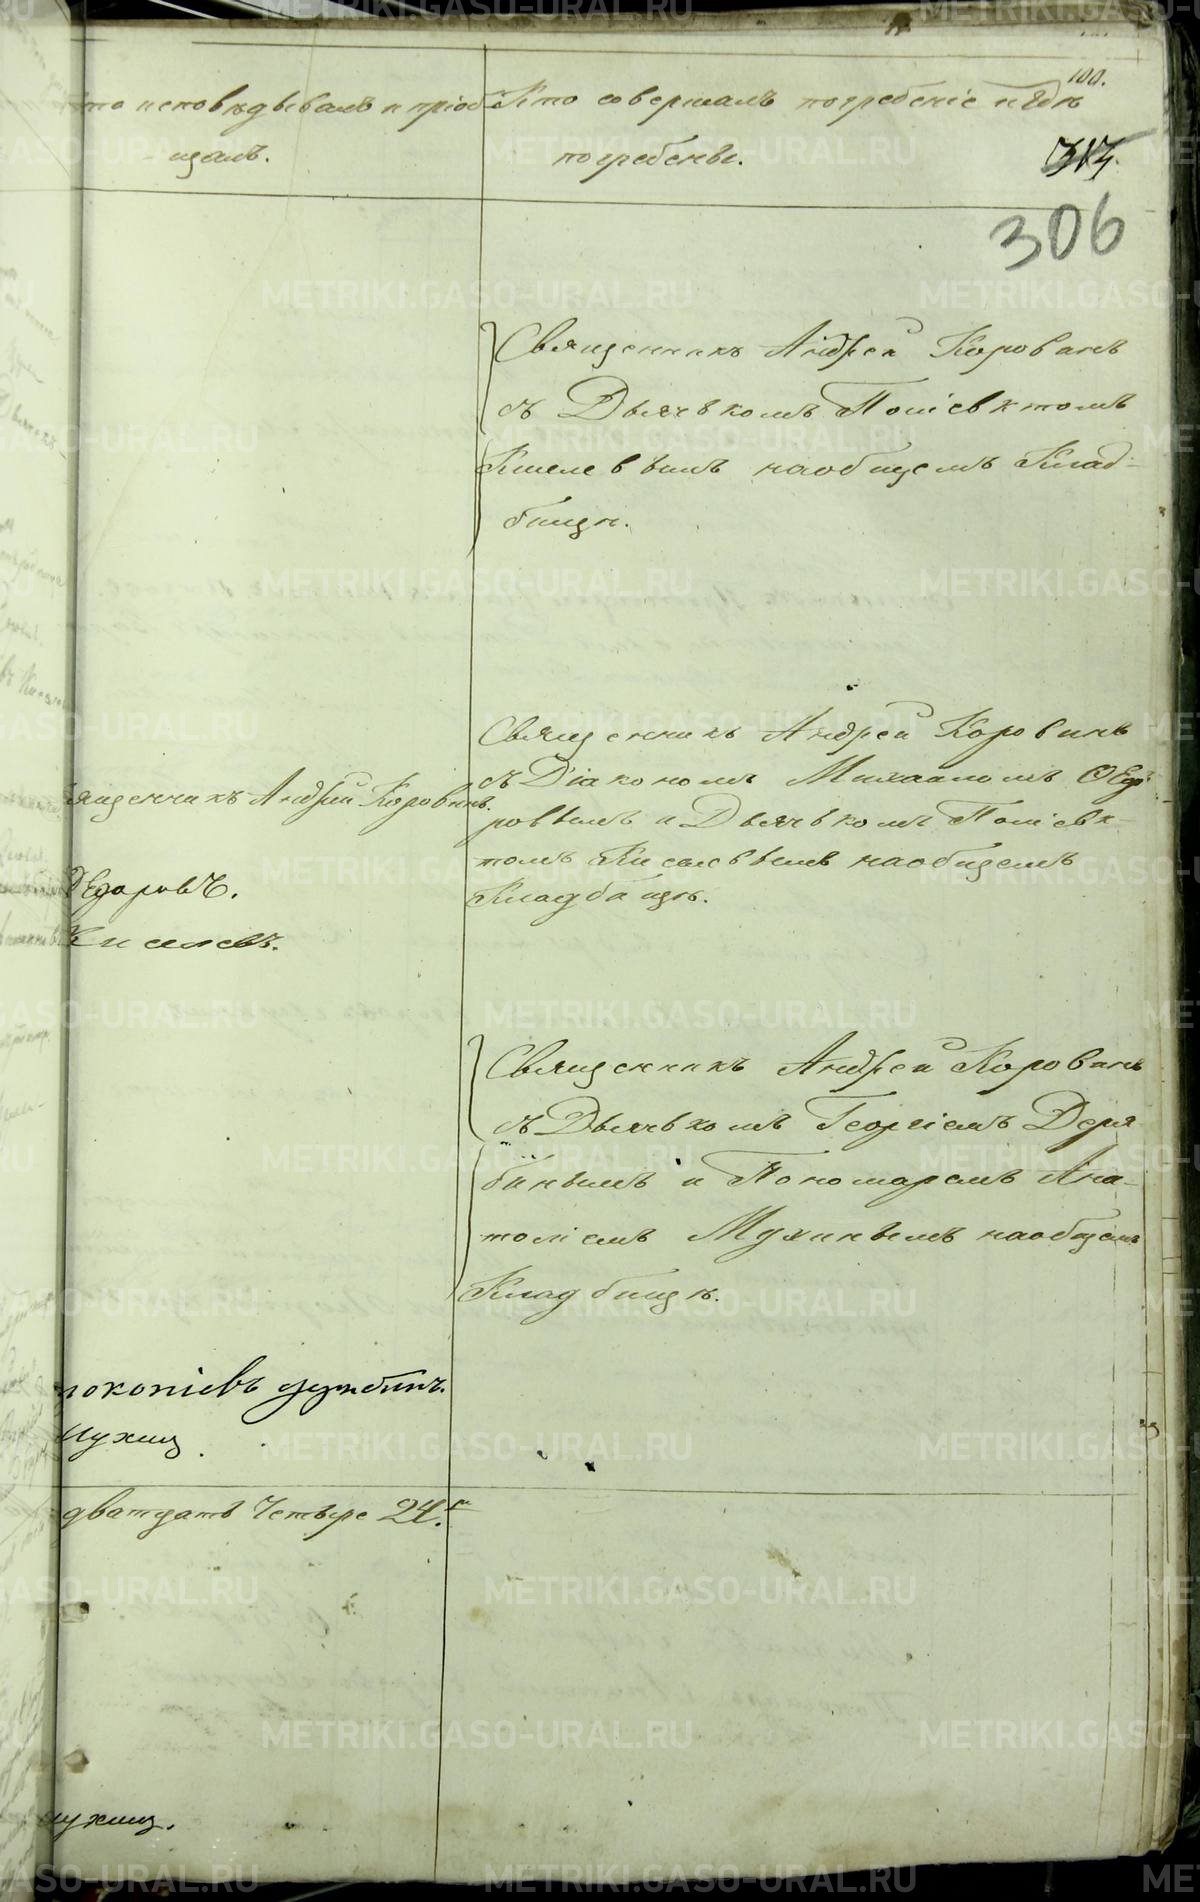 100.
то исповѣдывалъ и пріоб
щалъ.
Кто совершалъ погребеніе и гдѣ
погребены.
313.
306
Священникъ Андрей Коровинъ
съ Дьячькомъ Поліевктомъ
Киселевымъ наобщемъ Клад-
бищѣ.
Священникъ Андрей Коровинъ
съ Діакономъ Михаиломъ Ѳедо
ровымъ и Дьячькомъ Поліевк-
томъ Киселевымъ наобщемъ
Кладбищѣ.
ященникъ Андрей Коровинъ.
Ѳедоровъ.
Киселевъ.
Священникъ Андрей Коровинъ
съ Дьячькомъ Георгіемъ Деря
бинымъ и Пономаремъ Ана-
толіемъ Мухинымъ наобщемъ
Кладбищѣ.
рокопіевъ
Мухин
дватцать Четыре 24.
Мухин.
METRIKI.GASO-URAL.RU